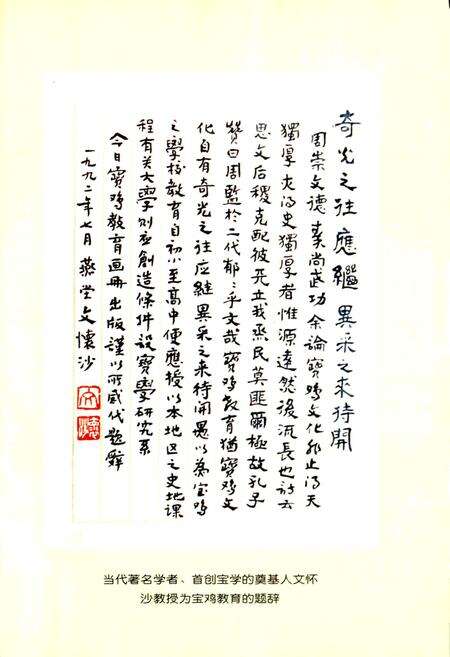 奇光之往應繼 異采之来待開
周崇文德 秦尚武功 余論寶鸡文化非止得天
獨厚 夫得史獨厚者惟源遠然後流長也 詩云
思文后稷克配彼天立我烝民莫匪爾極故孔子
贊曰周監於二代郁〻乎文哉寶鸡教育猶寶鸡文
化自有奇光之往应繼異采之来待開愚以為宝鸡
之學校教育自初小至高中便應授以本地区之史地課
程有关大學则应創造條件設寶學研究系
今日寶鸡教育画册出版謹以所感代题辞
一九九二年七月 燕堂文懷沙
文
懷沙
当代著名学者、首创宝学的奠基人文怀
沙教授为宝鸡教育的题辞